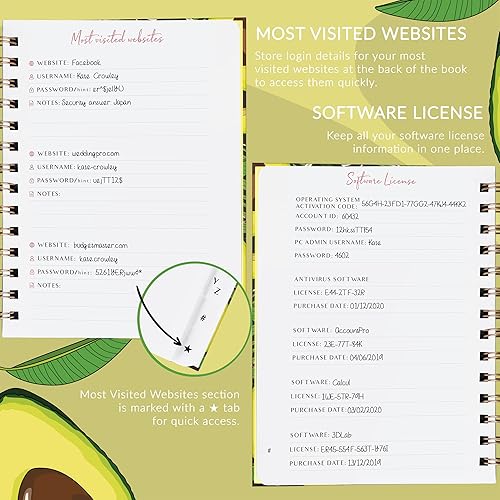 Most visited websites
WEBSITE: Facebook
USERNAME: Kate Crowley
PASSWORD/hint:
NOTES: Security answer Japan
WEBSITE: weddingpro.com
USERNAME: kate-crowley
PASSWORD/hint: uejTT12$
NOTES:
WEBSITE: budgetsmaster.com
USERNAME: kate.crowley
PASSWORD/hint:
NOTES:
Y
Z
#
★
Most Visited Websites section
is marked with a ★ tab
for quick access.
MOST VISITED WEBSITES
Store login details for your most
visited websites at the back of the book
to access them quickly.
SOFTWARE LICENSE
Keep all your software license
information in one place.
Software License
OPERATING SYSTEM
ACTIVATION CODE: 56G4H-23FD1-77GG2-47KJ4-44KK2
ACCOUNT ID: 60432
PASSWORD: 12hkssTT154
PC ADMIN USERNAME: Kate
PASSWORD: 4602
ANTIVIRUS SOFTWARE
LICENSE: E44-2TF-32R
PURCHASE DATE: 01/12/2020
SOFTWARE: AccountPro
LICENSE: 23E-77T-84K
PURCHASE DATE: 04/06/2019
SOFTWARE: Calcul
LICENSE: 1WE-5TR-79H
PURCHASE DATE: 03/02/2020
SOFTWARE: 3DLab
# LICENSE: ER45-554F-563T-1F76I
PURCHASE DATE: 13/12/2019